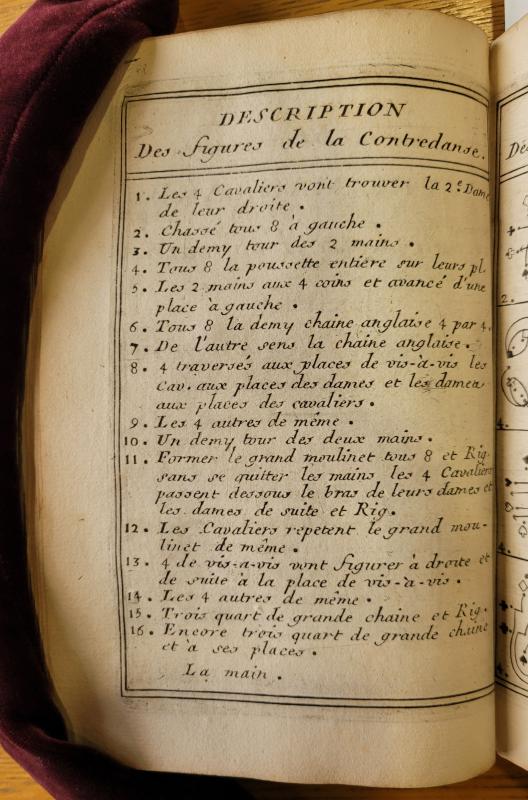 DESCRIPTION
Des figures de la Contredanse.
1. Les 4 Cavaliers vont trouver la 2.e Dame
de leur droite.
2. Chassé tous 8 à gauche.
3. Un demy tour des 2 mains.
4. Tous 8 la poussette entiere sur leurs pl.
5. Les 2 mains aux 4 coins et avancé d'une
place à gauche.
6. Tous 8 la demy chaine anglaise 4 par 4.
7. De l'autre sens la chaine anglaise.
8. 4 traversés aux places de vis-à-vis les
Cav. aux places des dames et les dames
aux places des cavaliers.
9. Les 4 autres de même.
10. Un demy tour des deux mains.
11. Former le grand moulinet tous 8 et Rig.
sans se quitter les mains les 4 Cavaliers
passent dessous le bras de leurs dames et
les dames de suite et Rig.
12. Les Cavaliers repetent le grand mou-
linet de même.
13. 4 de vis-a-vis vont figurer à droite et
de suite à la place de vis-à-vis.
14. Les 4 autres de même.
15. Trois quart de grande chaine et Rig.
16. Encore trois quart de grande chaine
et à ses places.
La main.